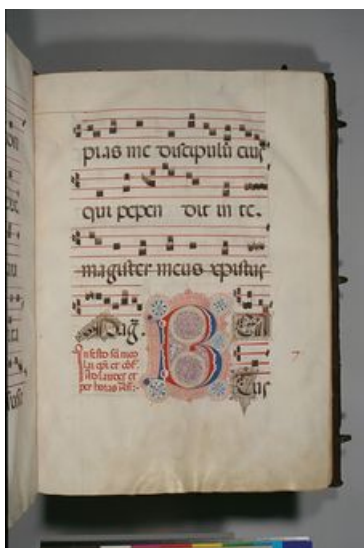 pias me discipulū eius
qui pepen dit in te.
magister meus xpistus
mag̅
B Ea
tus
In festo sc̅i nico
lai epi et cōf.
Ad laudes et
per horas añ.